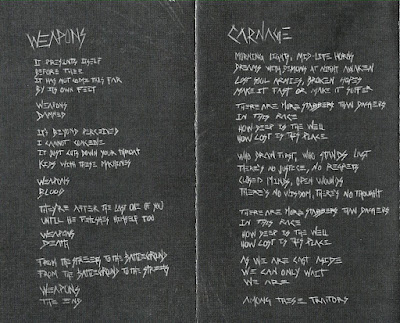 WEAPONS
IT PRESENTS ITSELF
BEFORE THEE
IT HAS NOT COME THIS FAR
BY ITS OWN FEET
WEAPONS
DAMNED
IT'S BEYOND PERCEIVED
I CANNOT CONCEIVE
IT JUST CUTS DOWN YOUR THROAT
KIDS WITH THESE MACHINES
WEAPONS
BLOOD
THEY'RE AFTER THE LAST ONE OF YOU
UNTIL HE FINISHES HIMSELF TOO
WEAPONS
DEATH
FROM THE STREETS TO THE BATTLEGROUND
FROM THE BATTLEGROUND TO THE STREETS
WEAPONS
THE END
CARNAGE
MORNING LIGHTS, MID-LIFE
DREAMS WITH DEMONS AT NIGHT AWAKEN
LOST SOUL ARMIES, BROKEN HOPES
MAKE IT FAST OR MAKE IT SUFFER
THERE ARE MORE STABBERS THAN DAGGERS
IN THIS RACE
HOW DEEP IS THE WELL
HOW LOST IS THIS PLACE
WHO DRAW FIRST, WHO STANDS LAST
THERE'S NO JUSTICE, NO REGRETS
CLOSED MINDS, OPEN WOUNDS
THERE'S NO WISDOM, THERE'S NO THOUGHT
THERE ARE MORE STABBERS THAN DAGGERS
IN THIS RACE
HOW DEEP IS THE WELL
HOW LOST IS THIS PLACE
AS WE ARE CAST ASIDE
WE CAN ONLY WAIT
WE ARE
AMONG THESE TRAITORS